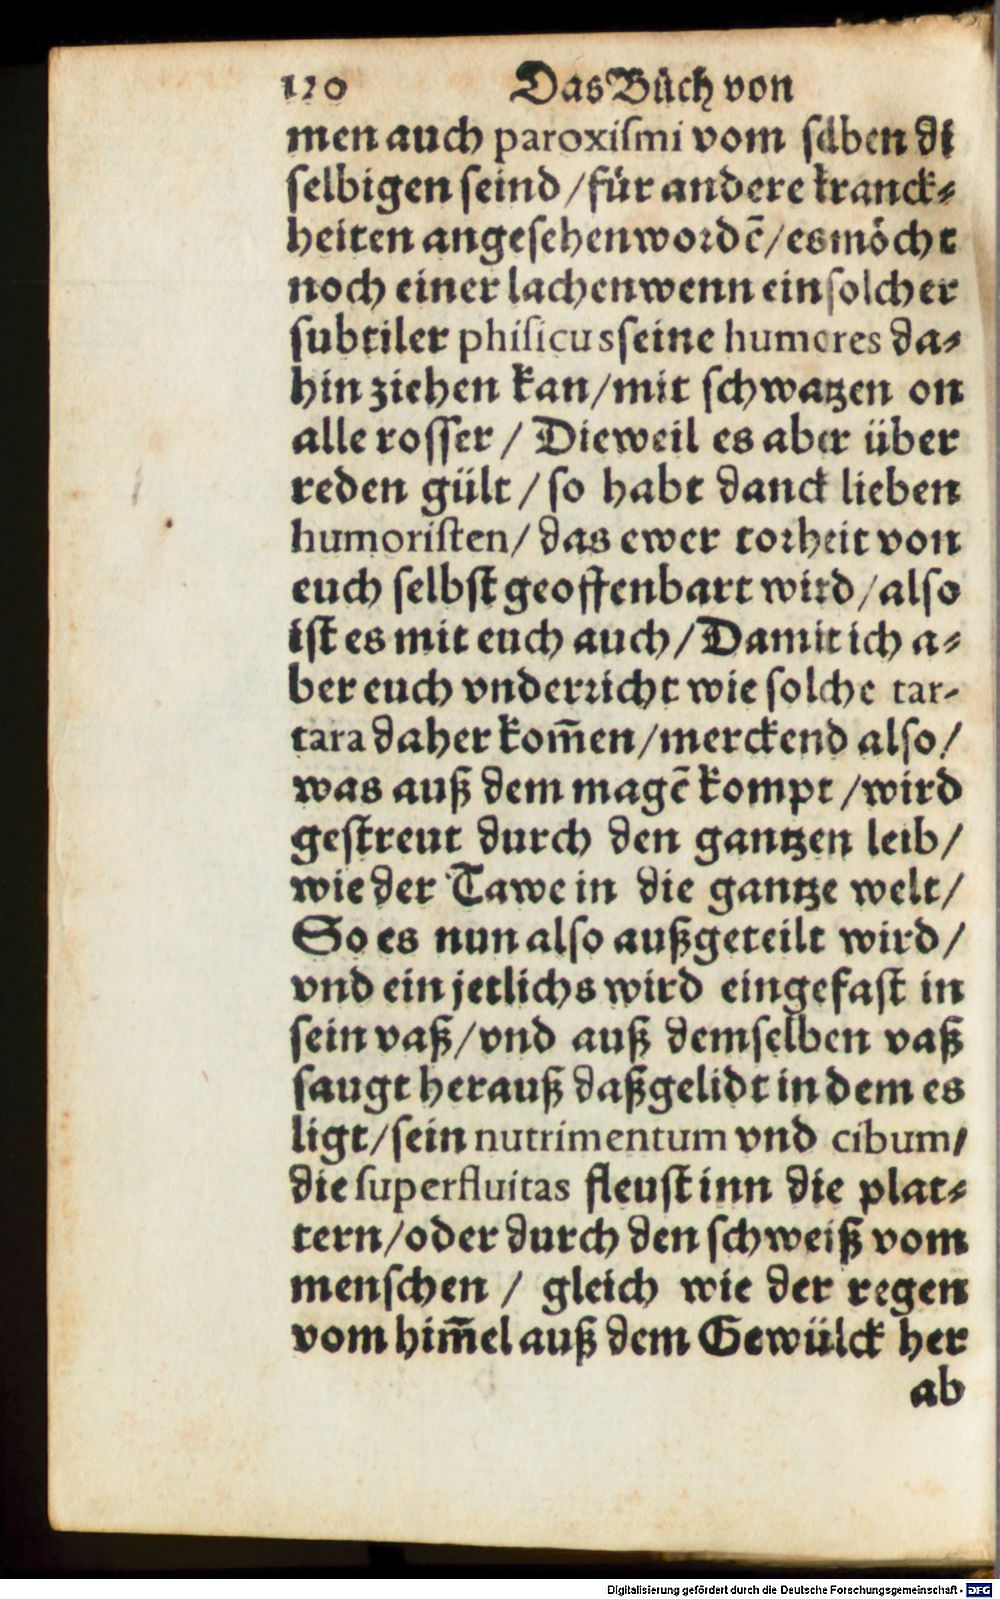 120 Das Bůch von
men auch paroxiſmi vom ſelben di
ſelbigen ſeind /für andere kranck⸗
heiten angeſehen wordẽ/es möcht
noch einer lachen wenn ein ſolcher
ſubtiler phiſicus ſeine humores da⸗
hin ziehen kan/mit ſchwatzen on
alle roſſer / Dieweil es aber über
reden gült / ſo habt danck lieben
humoriſten/ das ewer torheit von
euch ſelbſt geoffenbart wird/alſo
iſt es mit euch auch/Damit ich a⸗
ber euch vnderricht wie ſolche tar-
tara daher kom̃en/merckend alſo/
was auß dem magẽ kompt /wird
geſtreut durch den gantzen leib/
wie der Tawe in die gantze welt/
So es nun alſo außgeteilt wird/
vnd ein jetlichs wird eingefaſt in
ſein vaß/vnd auß demſelben vaß
ſaugt herauß daß gelidt in dem es
ligt/ſein nutrimentum vnd cibum/
die ſuperfluitas fleuſt inn die plat⸗
tern/oder durch den ſchweiß vom
menſchen / gleich wie der regen
vom him̃el auß dem Gewülck her
ab
Digitalisierung gefördert durch die Deutsche Forschungsgemeinschaft - DFG